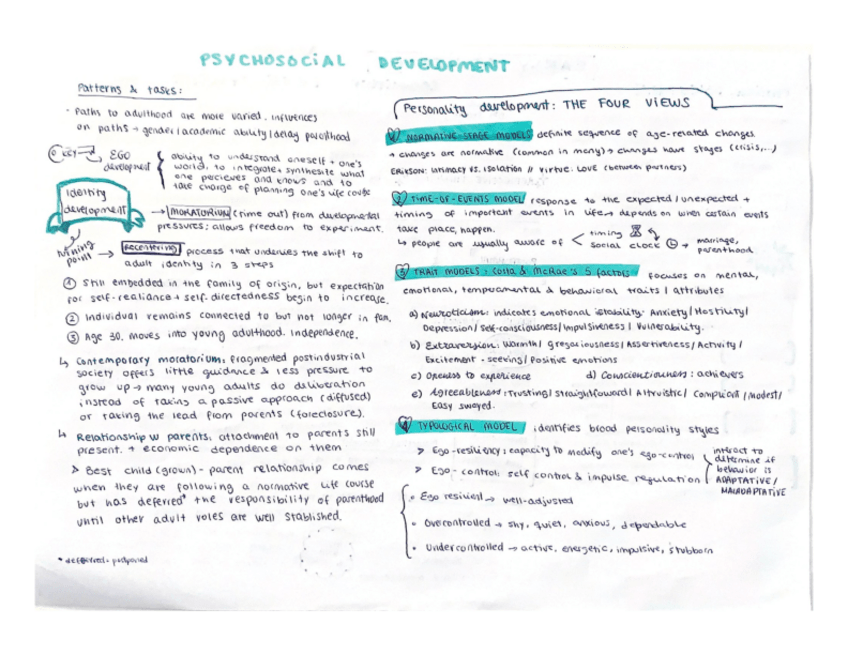 PSYCHOSOCIAL DEVELOPMENT
Patterns & tasks:
· Paths to adulthood are more varied. Influences
on paths → gender/academic ability/delay parenthood
key → EGO development { ability to understand oneself + one's
world, to integrate + synthesite what
one percieves and knows and to
take charge of planning one's life course
Identity
development
→ MORATORIUM (time out) from developmental
pressures; allows freedom to experiment.
turning
point → Recentering process that underlies the shift to
adult identity in 3 steps
① Still embedded in the family of origin, but expectation
for self-realiance + self-directedness begin to increase.
② Individual remains connected to but not longer in fam.
③ Age 30, moves into young adulthood. Independence.
↳ Contemporary moratorium: fragmented postindustrial
society offers little guidance & less pressure to
grow up → many young adults do deliberation
instead of taking a passive approach (diffused)
or taking the lead from parents (foreclosure).
↳ Relationship w parents. attachment to parents still
present. + economic dependence on them
> Best child (grown) - parent relationship comes
when they are following a normative life course
but has deferred* the responsibility of parenthood
until other adult roles are well stablished.
* deferred = postponed
Personality development: THE FOUR VIEWS
1 NORMATIVE-STAGE MODELS definite sequence of age-related changes
→ changes are normative (common in many) → changes have stages (crisis,...)
ERIKSON: Intimacy vs. isolation // virtue: LOVE (between partners)
2 TIME-OF-EVENTS MODEL response to the expected/unexpected +
timing of important events in life → depends on when certain events
take place, happen.
↳ people are usually aware of < timing
social clock → marriage,
parenthood
3 TRAIT MODELS: Costa & McRae's 5 factors focuses on mental,
emotional, temperamental & behavioral traits / attributes
a) Neuroticism: indicates emotional istability. Anxiety/Hostility/
Depression/Self-consciousness/Impulsiveness/Vulnerability.
b) Extraversion: Warmth/Gregariousness/Assertiveness/Activity/
Excitement-seeking/Positive emotions
c) Openess to experience d) Conscientiousness: achievers
e) Agreeableness: Trusting/Straightforward/Altruistic/Compliant/Modest/
Easy swayed.
4 TYPOLOGICAL MODEL identifies broad personality styles
> Ego-resiliency: capacity to modify one's ego-control
> Ego-control: self control & impulse regulation
interact to
determine if
behavior is
ADAPTATIVE/
MALADAPTATIVE
• Ego resilient → well-adjusted
• Overcontrolled → shy, quiet, anxious, dependable
• Undercontrolled → active, energetic, impulsive, stubborn